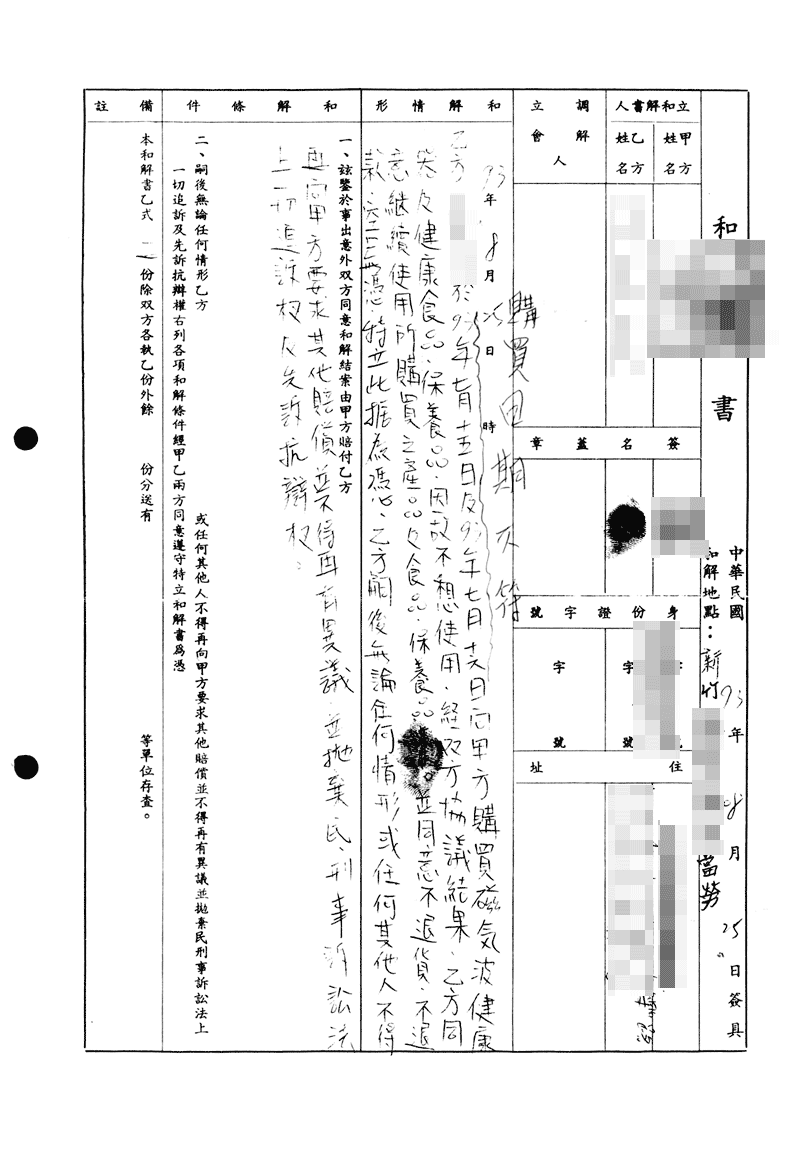 和解書
中華民國93年08月25日簽具
和解地點：新竹
當勞
立和解書人
甲方姓名
乙方姓名
調解人
立會人
簽名蓋章
身份證字號
字號
字號
住址
和解情形
93年8月25日時
購買日期不符
乙方於93年七月十五日及93年七月十六日向甲方購買磁気波健康
及健康食品、保養品、因故不想使用、經双方協議結果、乙方同
意継續使用所購買之產品及食品、保養品。並同意不退貨、不退
款、空口無憑、特立此据為憑、乙方嗣後無論任何情形或任何其他人不得
再向甲方要求其他賠償並不得再有異議、並拋棄民、刑事訴訟法
上一切追訴权及先訴抗辯权。
和解條件
一、茲鑒於事出意外双方同意和解結案由甲方賠付乙方
二、嗣後無論任何情形乙方 或任何其他人不得再向甲方要求其他賠償並不得再有異議並拋棄民刑事訴訟法上
一切追訴及先訴抗辯權右列各項和解條件經甲乙兩方同意遵守特立和解書爲憑
備註
本和解書乙式二份除双方各執乙份外餘 份分送有 等單位存查。